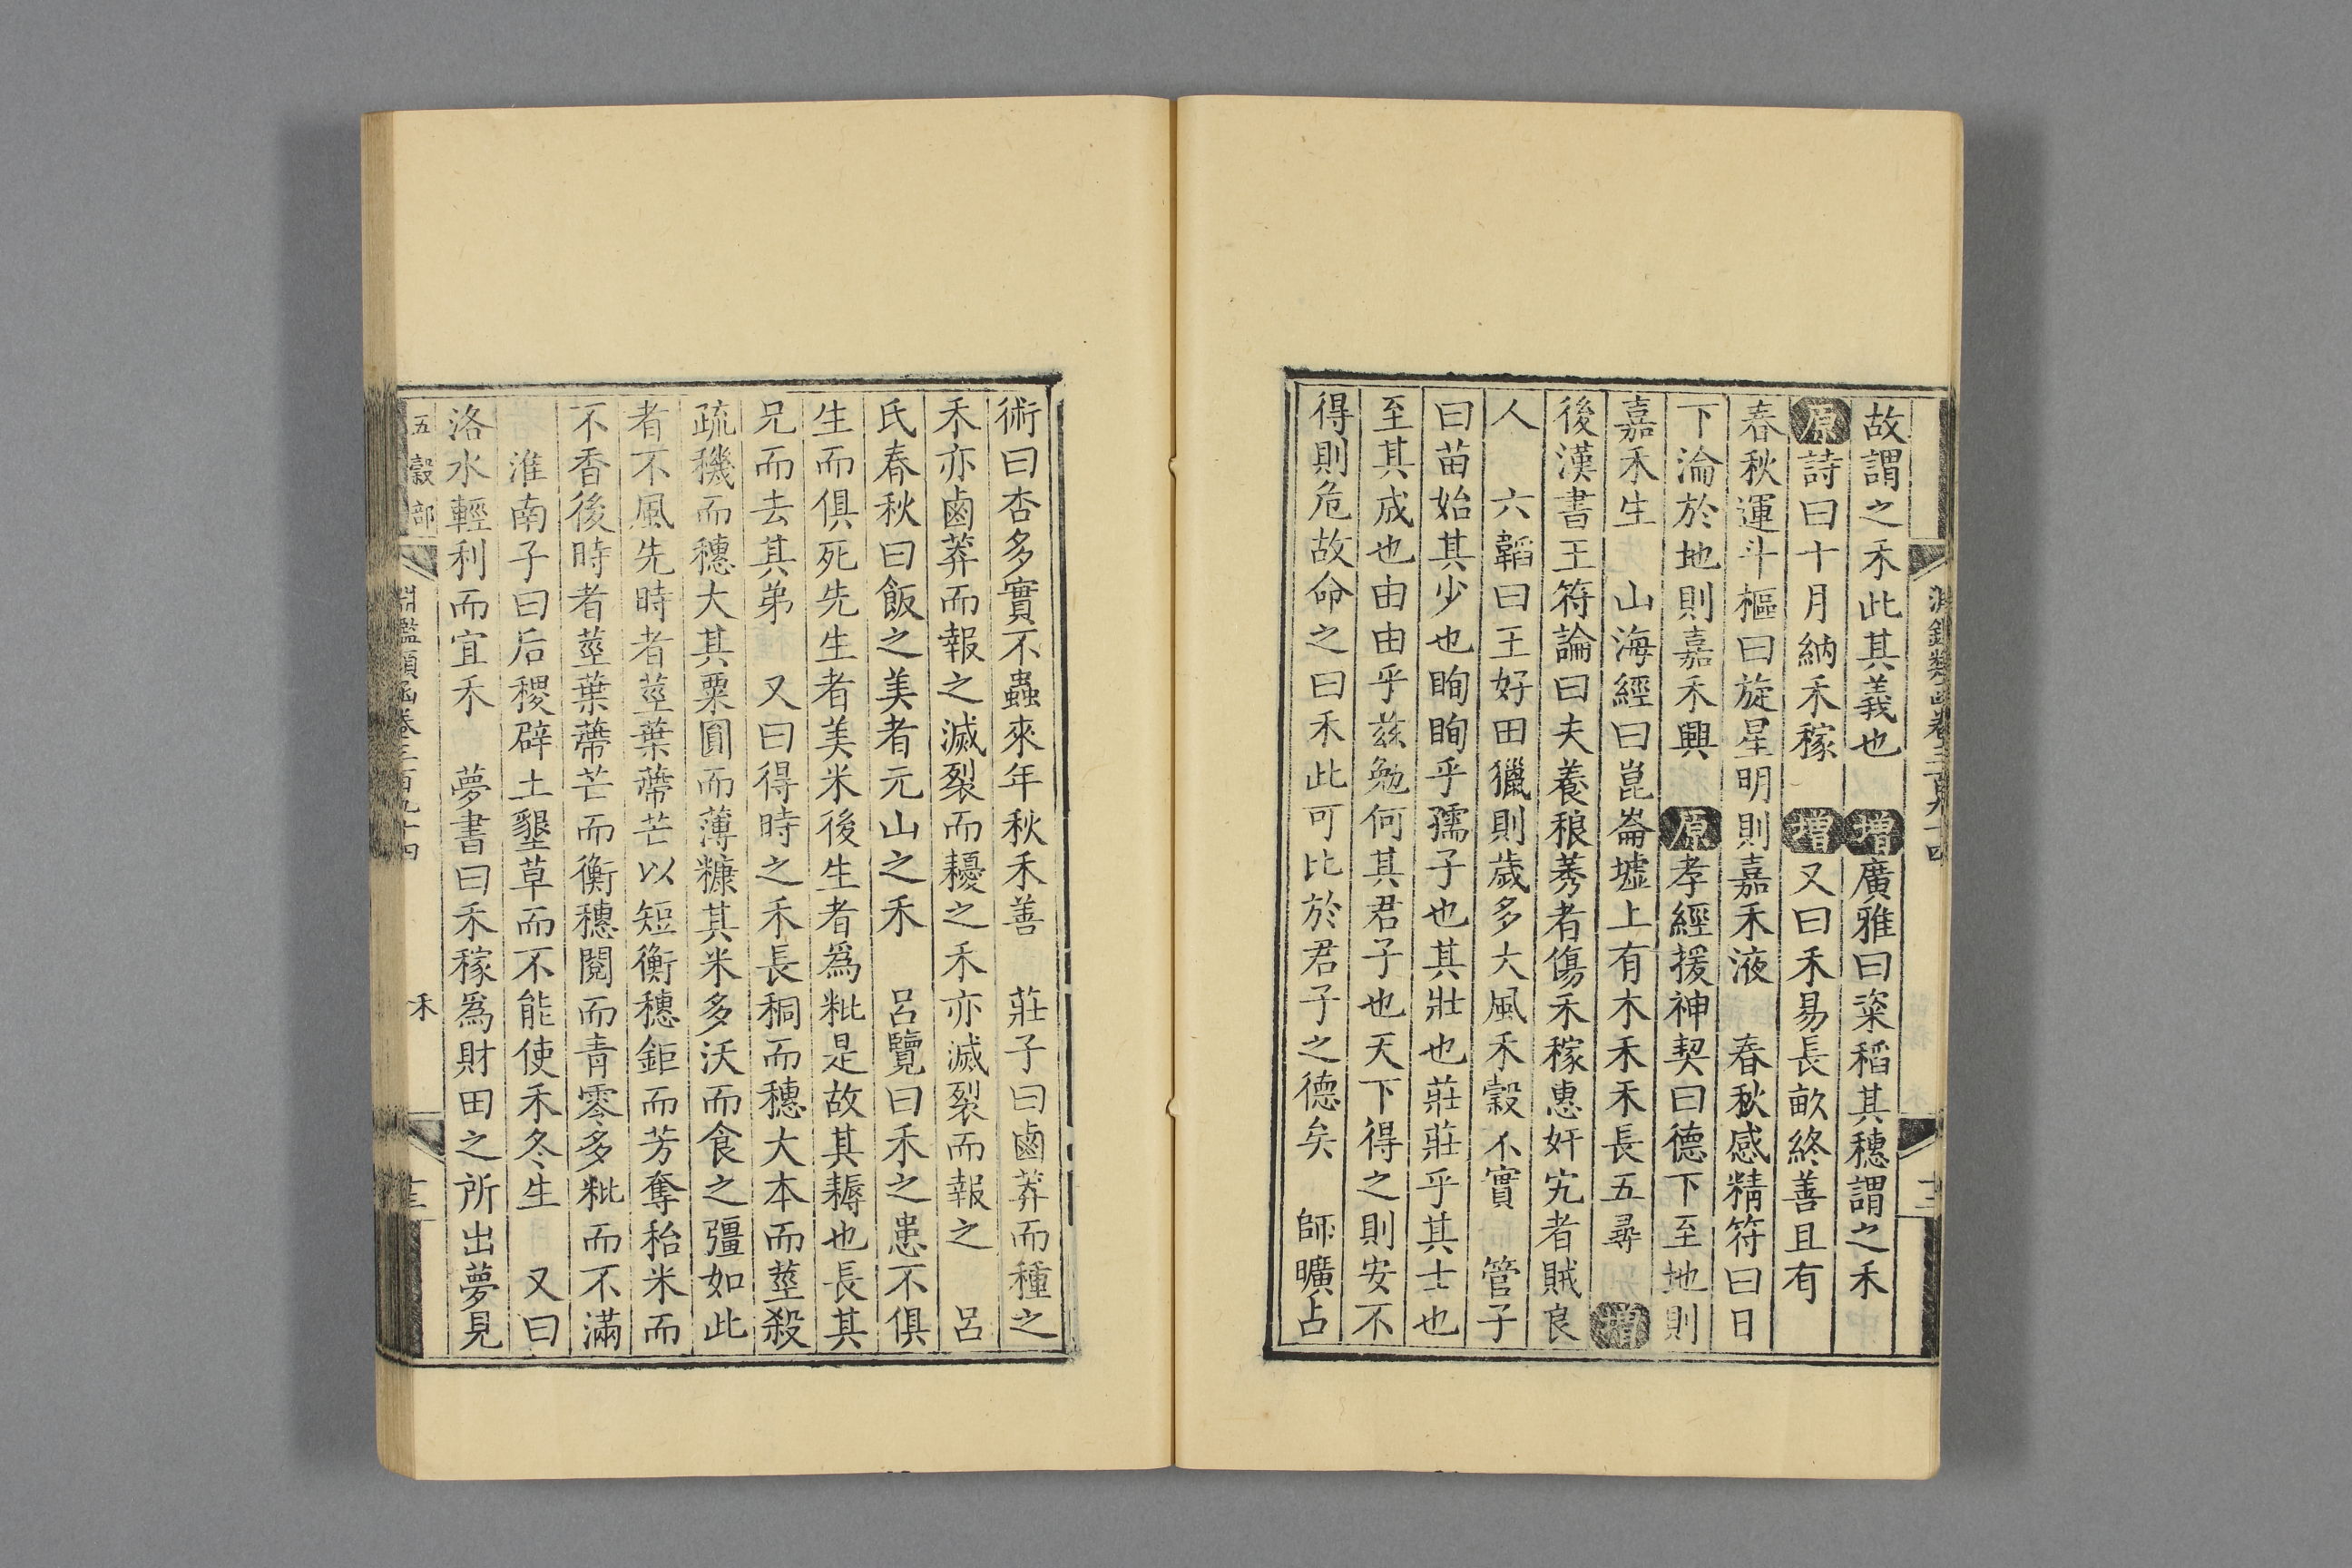 故謂之禾此其義也　增廣雅曰粢稻其穗謂之禾
原詩曰十月納禾稼　增又曰禾易長畝終善且有
春秋運斗樞曰旋星明則嘉禾液　春秋感精符曰日
下淪於地則嘉禾興　原孝經援神契曰德下至地則
嘉禾生　山海經曰崑崙墟上有木禾禾長五尋　增
後漢書王符論曰夫養稂莠者傷禾稼惠奸宄者賊良
人　六韜曰王好田獵則歲多大風禾穀不實　管子
曰苗始其少也眴眴乎孺子也其壯也莊莊乎其士也
至其成也由由乎茲勉何其君子也天下得之則安不
得則危故命之曰禾此可比於君子之德矣　師曠占
術曰杏多實不蟲來年秋禾善　莊子曰鹵莽而種之
禾亦鹵莽而報之滅裂而耰之禾亦滅裂而報之　呂
氏春秋曰飯之美者元山之禾　呂覽曰禾之患不俱
生而俱死先生者美米後生者爲粃是故其耨也長其
兄而去其弟　又曰得時之禾長秱而穗大本而莖殺
疏穖而穗大其粟圓而薄糠其米多沃而食之彊如此
者不風先時者莖葉蔕芒以短衡穗鉅而芳奪秮米而
不香後時者莖葉蔕芒而衡穗閱而青零多粃而不滿
淮南子曰后稷辟土墾草而不能使禾冬生　又曰
洛水輕利而宜禾　夢書曰禾稼爲財田之所出夢見
五穀部　淵鑑類函卷三百九十四　禾　十三